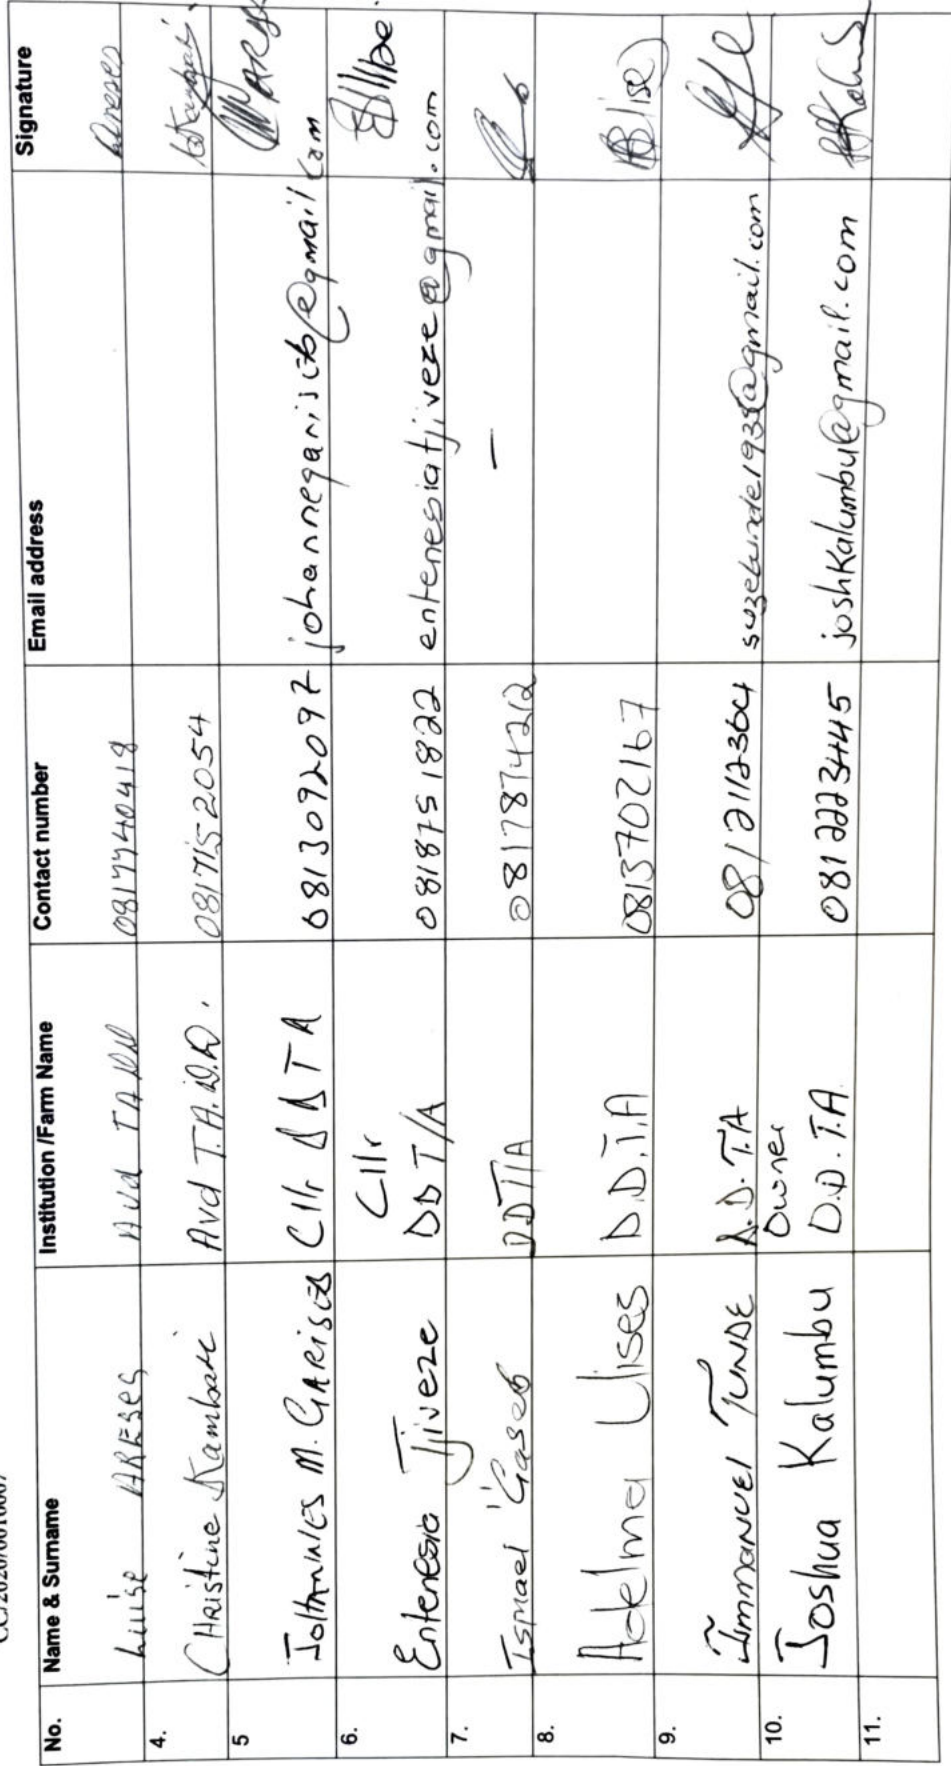 No. Name & Surname Institution /Farm Name Contact number Email address Signature
Luise ARESES Avd TA DD 0817740418 Areses
4. CHRistine Kambari Avd T.A. D.D. 0817152054
5 JOHANNES M. GARISEB Cllr DDTA 0813092097
6. Entenesia Tjiveze Cllr DDT/A 0818751822 entenesiatjiveze@gmail.com
7. Ismael ǃGaseb DDT/A 0817874212 –
8. Adelma Uises D.D.T.A 0813702167
9. Immanuel TUNDE D.D.T.A 0812112364
10. Joshua Kalumbu Owner D.D.T.A. 0812223445 joshkalumbu@gmail.com
11.